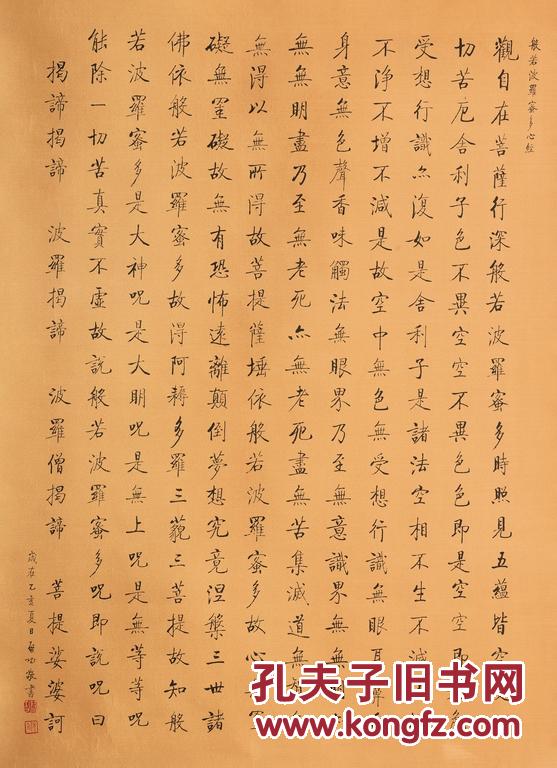 般若波羅蜜多心經
觀自在菩薩行深般若波羅蜜多時照見五蘊皆空
切苦厄舍利子色不異空空不異色色即是空空即
受想行識亦復如是舍利子是諸法空相不生不滅
不淨不增不減是故空中無色無受想行識無眼耳鼻
身意無色聲香味觸法無眼界乃至無意識界無無
無無明盡乃至無老死亦無老死盡無苦集滅道無
無得以無所得故菩提薩埵依般若波羅蜜多故心
礙無罣礙故無有恐怖遠離顛倒夢想究竟涅槃三世諸
佛依般若波羅蜜多故得阿耨多羅三藐三菩提故知般
若波羅蜜多是大神呪是大明呪是無上呪是無等等呪
能除一切苦真實不虛故說般若波羅蜜多呪即說呪曰
揭諦揭諦 波羅揭諦 波羅僧揭諦 菩提娑婆訶
歲在乙亥夏日啟功敬書
孔夫子旧书网
www.kongfz.com